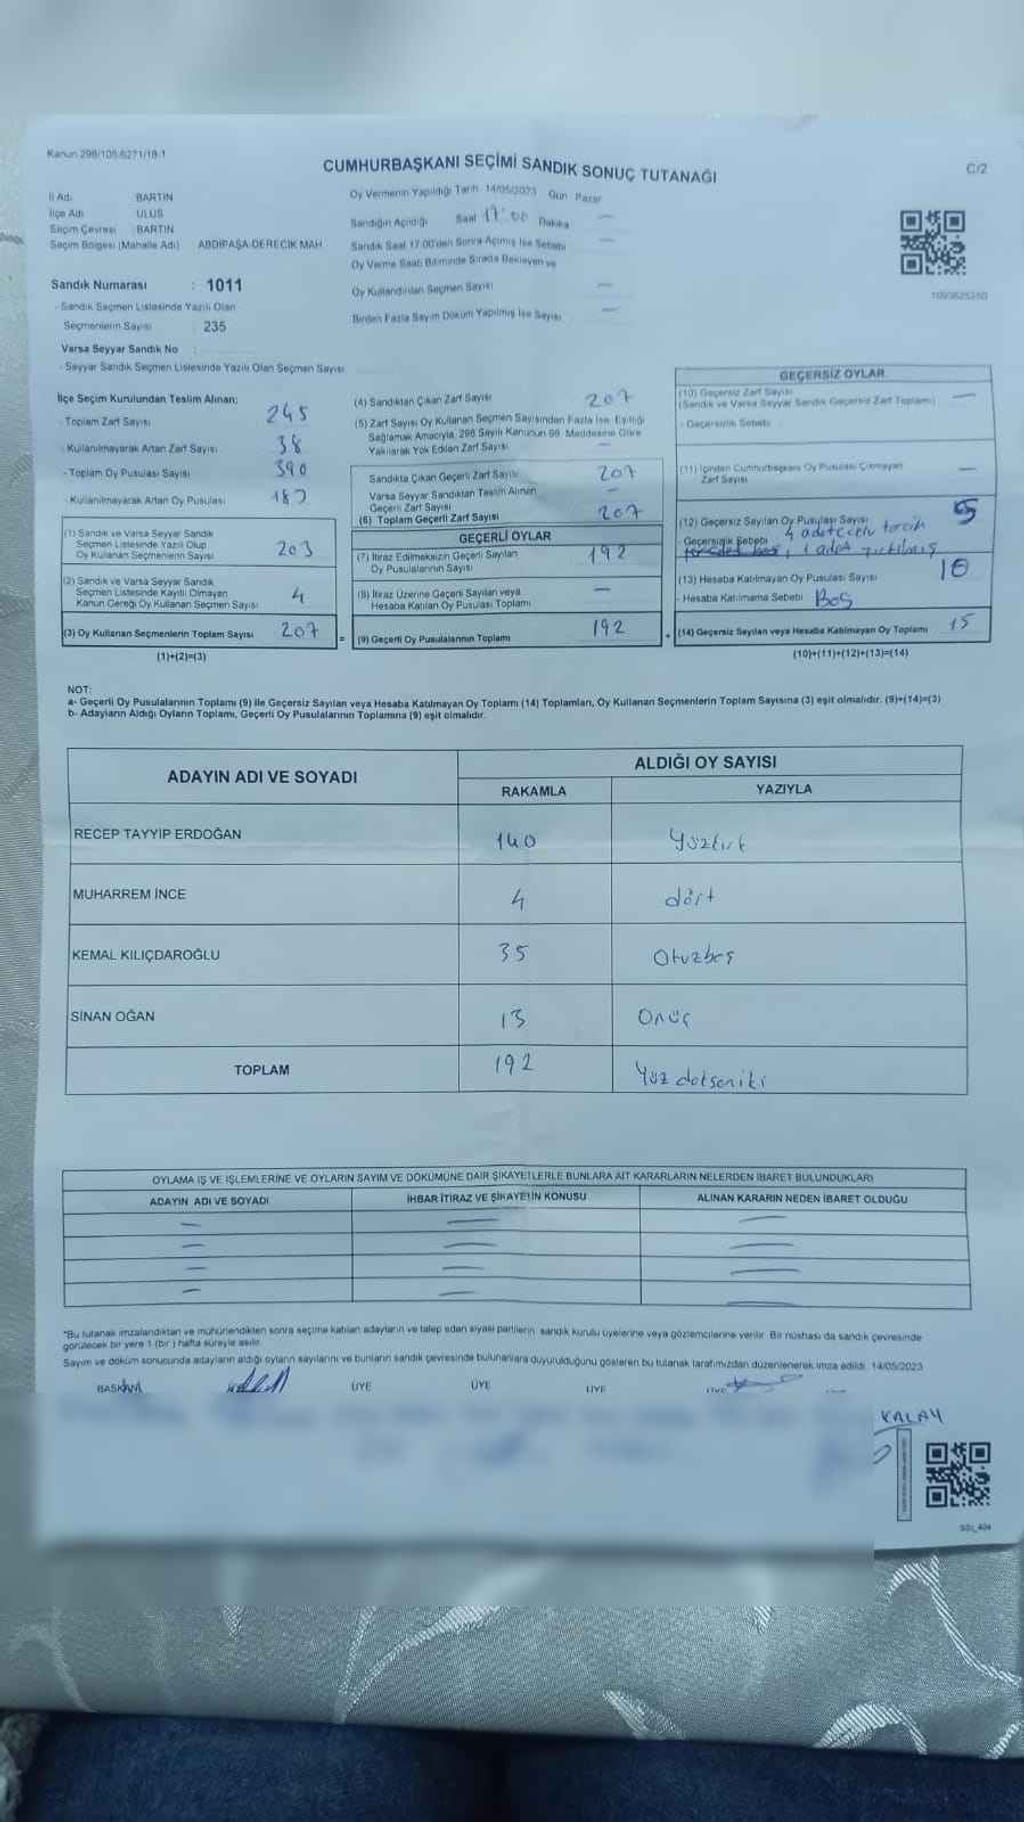 Kanun 298/105-6271/18-1
CUMHURBAŞKANI SEÇİMİ SANDIK SONUÇ TUTANAĞI
C/2
İl Adı BARTIN
İlçe Adı ULUS
Seçim Çevresi BARTIN
Seçim Bölgesi (Mahalle Adı) ABDİPAŞA-DERECİK MAH
Sandık Numarası : 1011
- Sandık Seçmen Listesinde Yazılı Olan
Seçmenlerin Sayısı 235
Varsa Seyyar Sandık No :
- Seyyar Sandık Seçmen Listesinde Yazılı Olan Seçmen Sayısı
Oy Vermenin Yapıldığı Tarih 14/05/2023 Gün Pazar
Sandığın Açıldığı Saat 17:00 Dakika —
Sandık Saat 17.00'den Sonra Açılmış İse Sebebi —
Oy Verme Saati Bitiminde Sırada Bekleyen ve
Oy Kullandırılan Seçmen Sayısı —
Birden Fazla Sayım Döküm Yapılmış İse Sayısı —
İlçe Seçim Kurulundan Teslim Alınan;
Toplam Zarf Sayısı 245
- Kullanılmayarak Artan Zarf Sayısı 38
- Toplam Oy Pusulası Sayısı 390
- Kullanılmayarak Artan Oy Pusulası
(1) Sandık ve Varsa Seyyar Sandık
Seçmen Listesinde Yazılı Olup
Oy Kullanan Seçmenlerin Sayısı 203
(2) Sandık ve Varsa Seyyar Sandık
Seçmen Listesinde Kayıtlı Olmayan
Kanun Gereği Oy Kullanan Seçmen Sayısı 4
(3) Oy Kullanan Seçmenlerin Toplam Sayısı 207 =
(1)+(2)=(3)
(4) Sandıktan Çıkan Zarf Sayısı 207
(5) Zarf Sayısı Oy Kullanan Seçmen Sayısından Fazla İse, Eşitliği
Sağlamak Amacıyla, 298 Sayılı Kanunun 98. Maddesine Göre
Yakılarak Yok Edilen Zarf Sayısı —
Sandıkta Çıkan Geçerli Zarf Sayısı 207
Varsa Seyyar Sandıktan Teslim Alınan
Geçerli Zarf Sayısı —
(6) Toplam Geçerli Zarf Sayısı 207
GEÇERLİ OYLAR
(7) İtiraz Edilmeksizin Geçerli Sayılan
Oy Pusulalarının Sayısı 192
(8) İtiraz Üzerine Geçerli Sayılan veya
Hesaba Katılan Oy Pusulası Toplamı —
(9) Geçerli Oy Pusulalarının Toplamı 192 +
GEÇERSİZ OYLAR
(10) Geçersiz Zarf Sayısı
(Sandık ve Varsa Seyyar Sandık Geçersiz Zarf Toplamı) —
- Geçersizlik Sebebi
(11) İçinden Cumhurbaşkanı Oy Pusulası Çıkmayan
Zarf Sayısı —
(12) Geçersiz Sayılan Oy Pusulası Sayısı 5
- Geçersizlik Sebebi 4 adet tercih
1 adet yırtılmış
(13) Hesaba Katılmayan Oy Pusulası Sayısı 10
- Hesaba Katılmama Sebebi Boş
(14) Geçersiz Sayılan veya Hesaba Katılmayan Oy Toplamı 15
(10)+(11)+(12)+(13)=(14)
NOT:
a- Geçerli Oy Pusulalarının Toplamı (9) ile Geçersiz Sayılan veya Hesaba Katılmayan Oy Toplamı (14) Toplamları, Oy Kullanan Seçmenlerin Toplam Sayısına (3) eşit olmalıdır. (9)+(14)=(3)
b- Adayların Aldığı Oyların Toplamı, Geçerli Oy Pusulalarının Toplamına (9) eşit olmalıdır.
ADAYIN ADI VE SOYADI
ALDIĞI OY SAYISI
RAKAMLA YAZIYLA
RECEP TAYYİP ERDOĞAN 140 Yüzkırk
MUHARREM İNCE 4 dört
KEMAL KILIÇDAROĞLU 35 Otuzbeş
SİNAN OĞAN 13 Onüç
TOPLAM 192 Yüz doksaniki
OYLAMA İŞ VE İŞLEMLERİNE VE OYLARIN SAYIM VE DÖKÜMÜNE DAİR ŞİKAYETLERLE BUNLARA AİT KARARLARIN NELERDEN İBARET BULUNDUKLARI
ADAYIN ADI VE SOYADI İHBAR İTİRAZ VE ŞİKAYETİN KONUSU ALINAN KARARIN NEDEN İBARET OLDUĞU
— — —
— — —
— — —
— — —
*Bu tutanak imzalandıktan ve mühürlendikten sonra seçime katılan adayların ve talep eden siyasi partilerin sandık kurulu üyelerine veya gözlemcilerine verilir. Bir nüshası da sandık çevresinde
görülecek bir yere 1 (bir) hafta süreyle asılır.
Sayım ve döküm sonucunda adayların aldığı oyların sayılarını ve bunların sandık çevresinde bulunanlara duyurulduğunu gösteren bu tutanak tarafımızdan düzenlenerek imza edildi. 14/05/2023
BAŞKAN ÜYE ÜYE ÜYE
KALAY